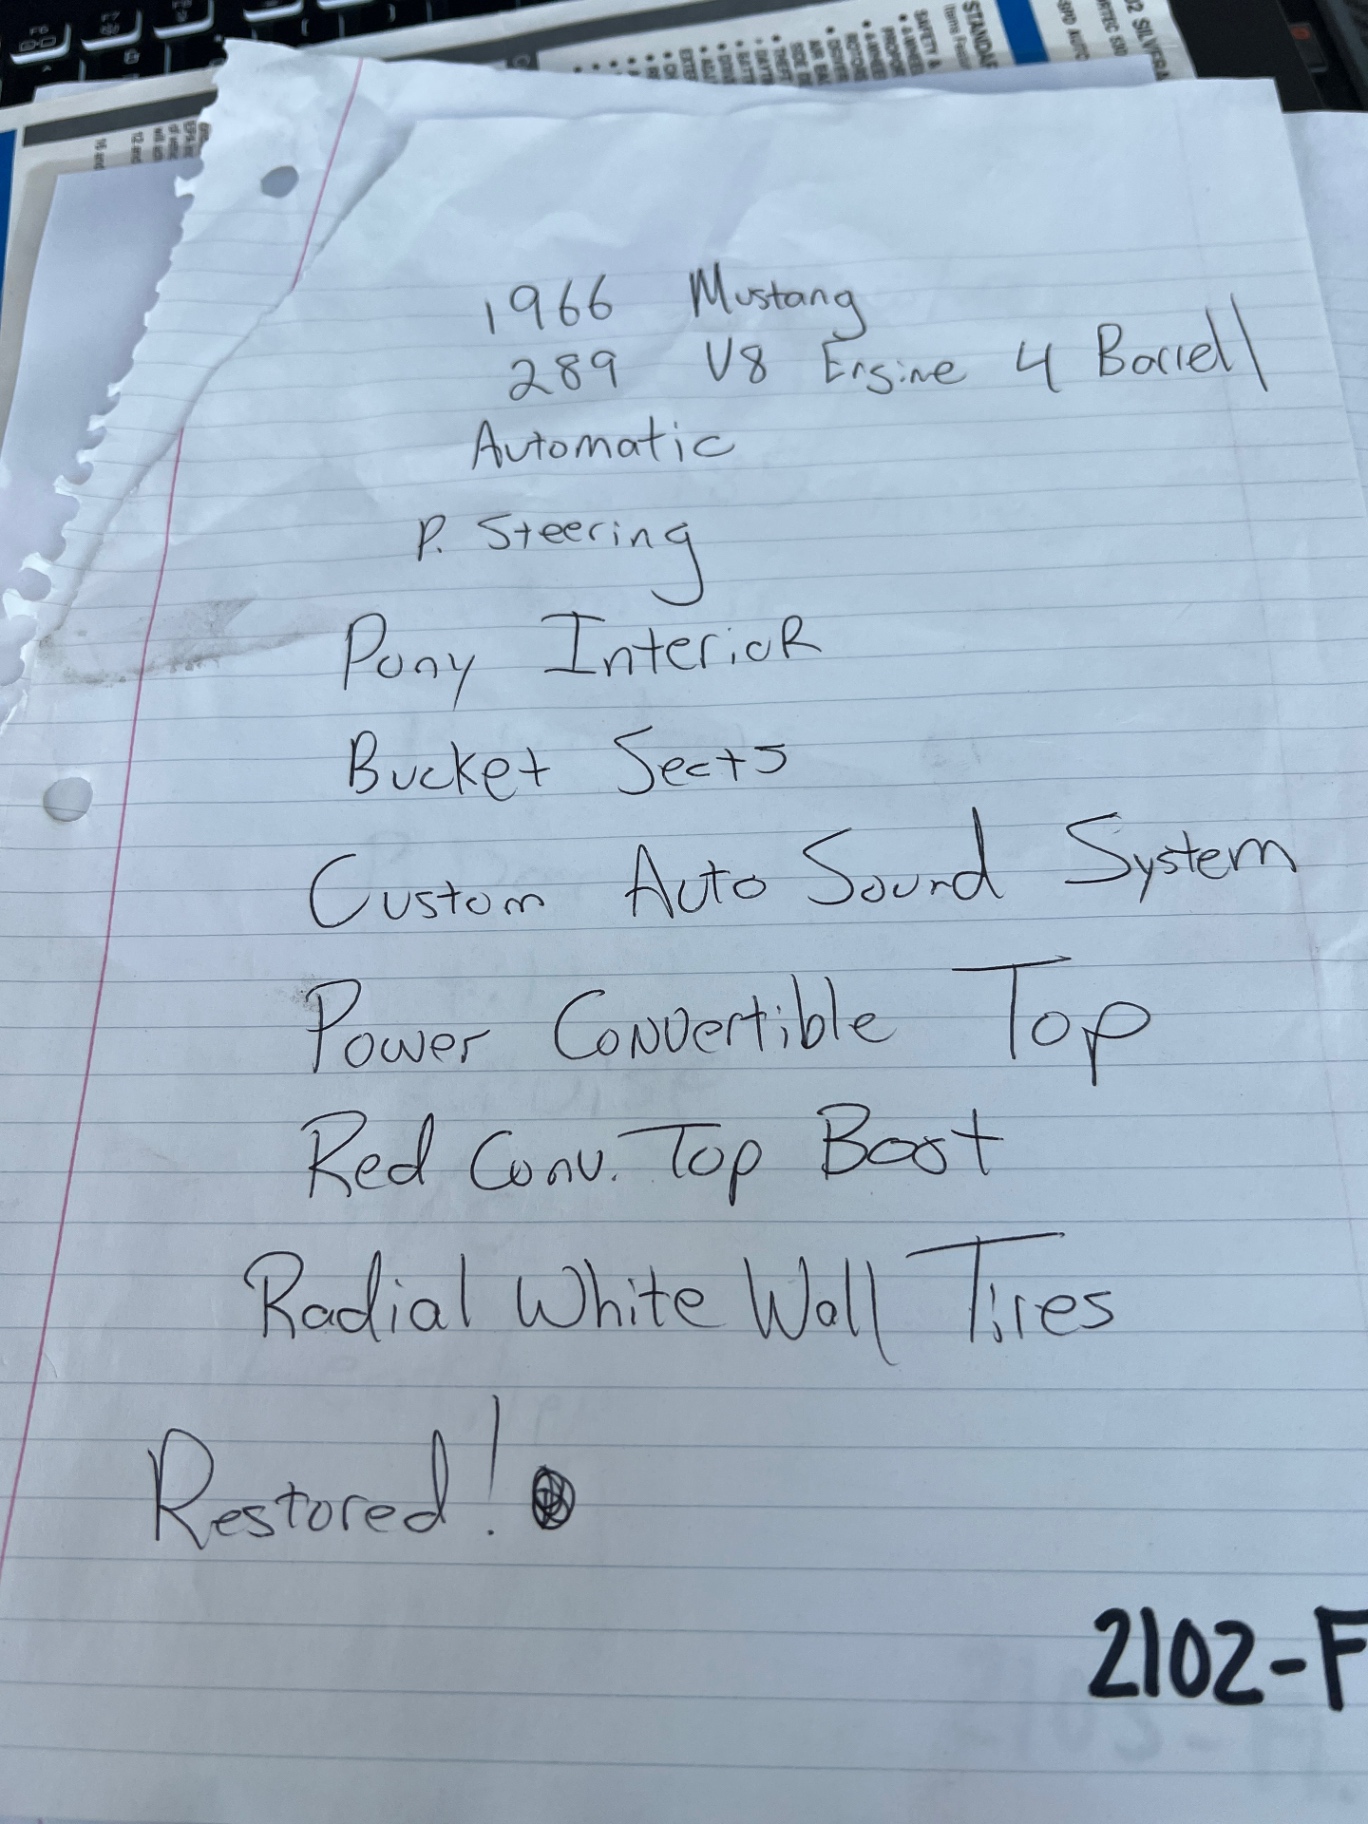 02 SILVERA
STANDA
SAFETY &
1966 Mustang
289 V8 Engine 4 Barrell
Automatic
P. Steering
Pony Interior
Bucket Seats
Custom Auto Sound System
Power Convertible Top
Red Conv. Top Boot
Radial White Wall Tires
Restored!
2102-F